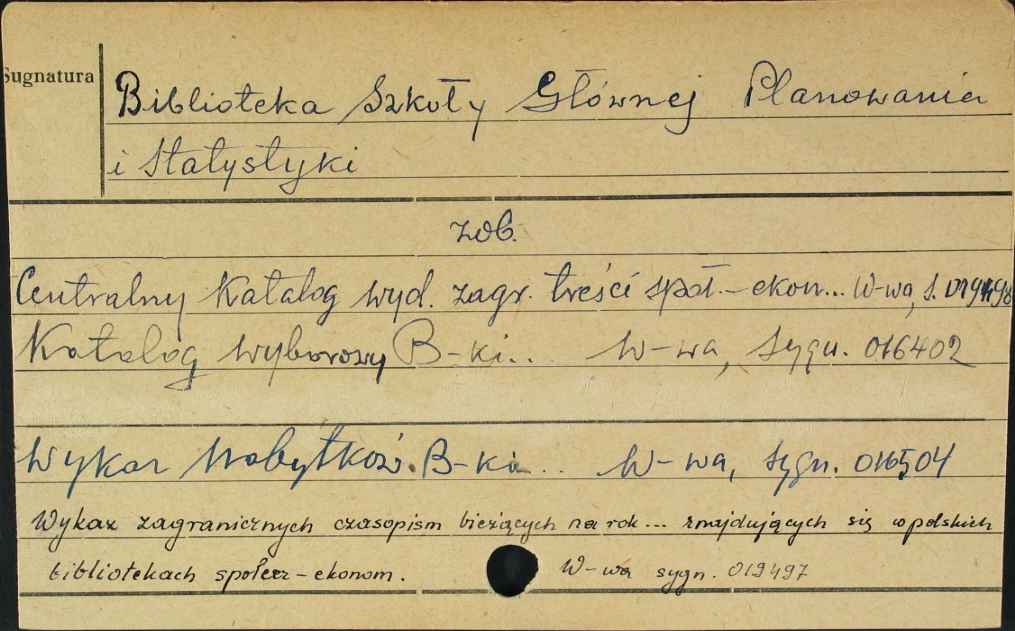 Sygnatura
Biblioteka Szkoły Głównej Planowania
i Statystyki
zob.
Centralny Katalog wyd. zagr. treści społ.-ekon... W-wa, s.
Katalog wyborowy B-ki... W-wa, sygn. 016402
Wykaz Nabytków. B-ki... W-wa, sygn. 016504
Wykaz zagranicznych czasopism bieżących na rok... znajdujących się w polskich
bibliotekach społecz-ekonom. W-wa sygn. 019497